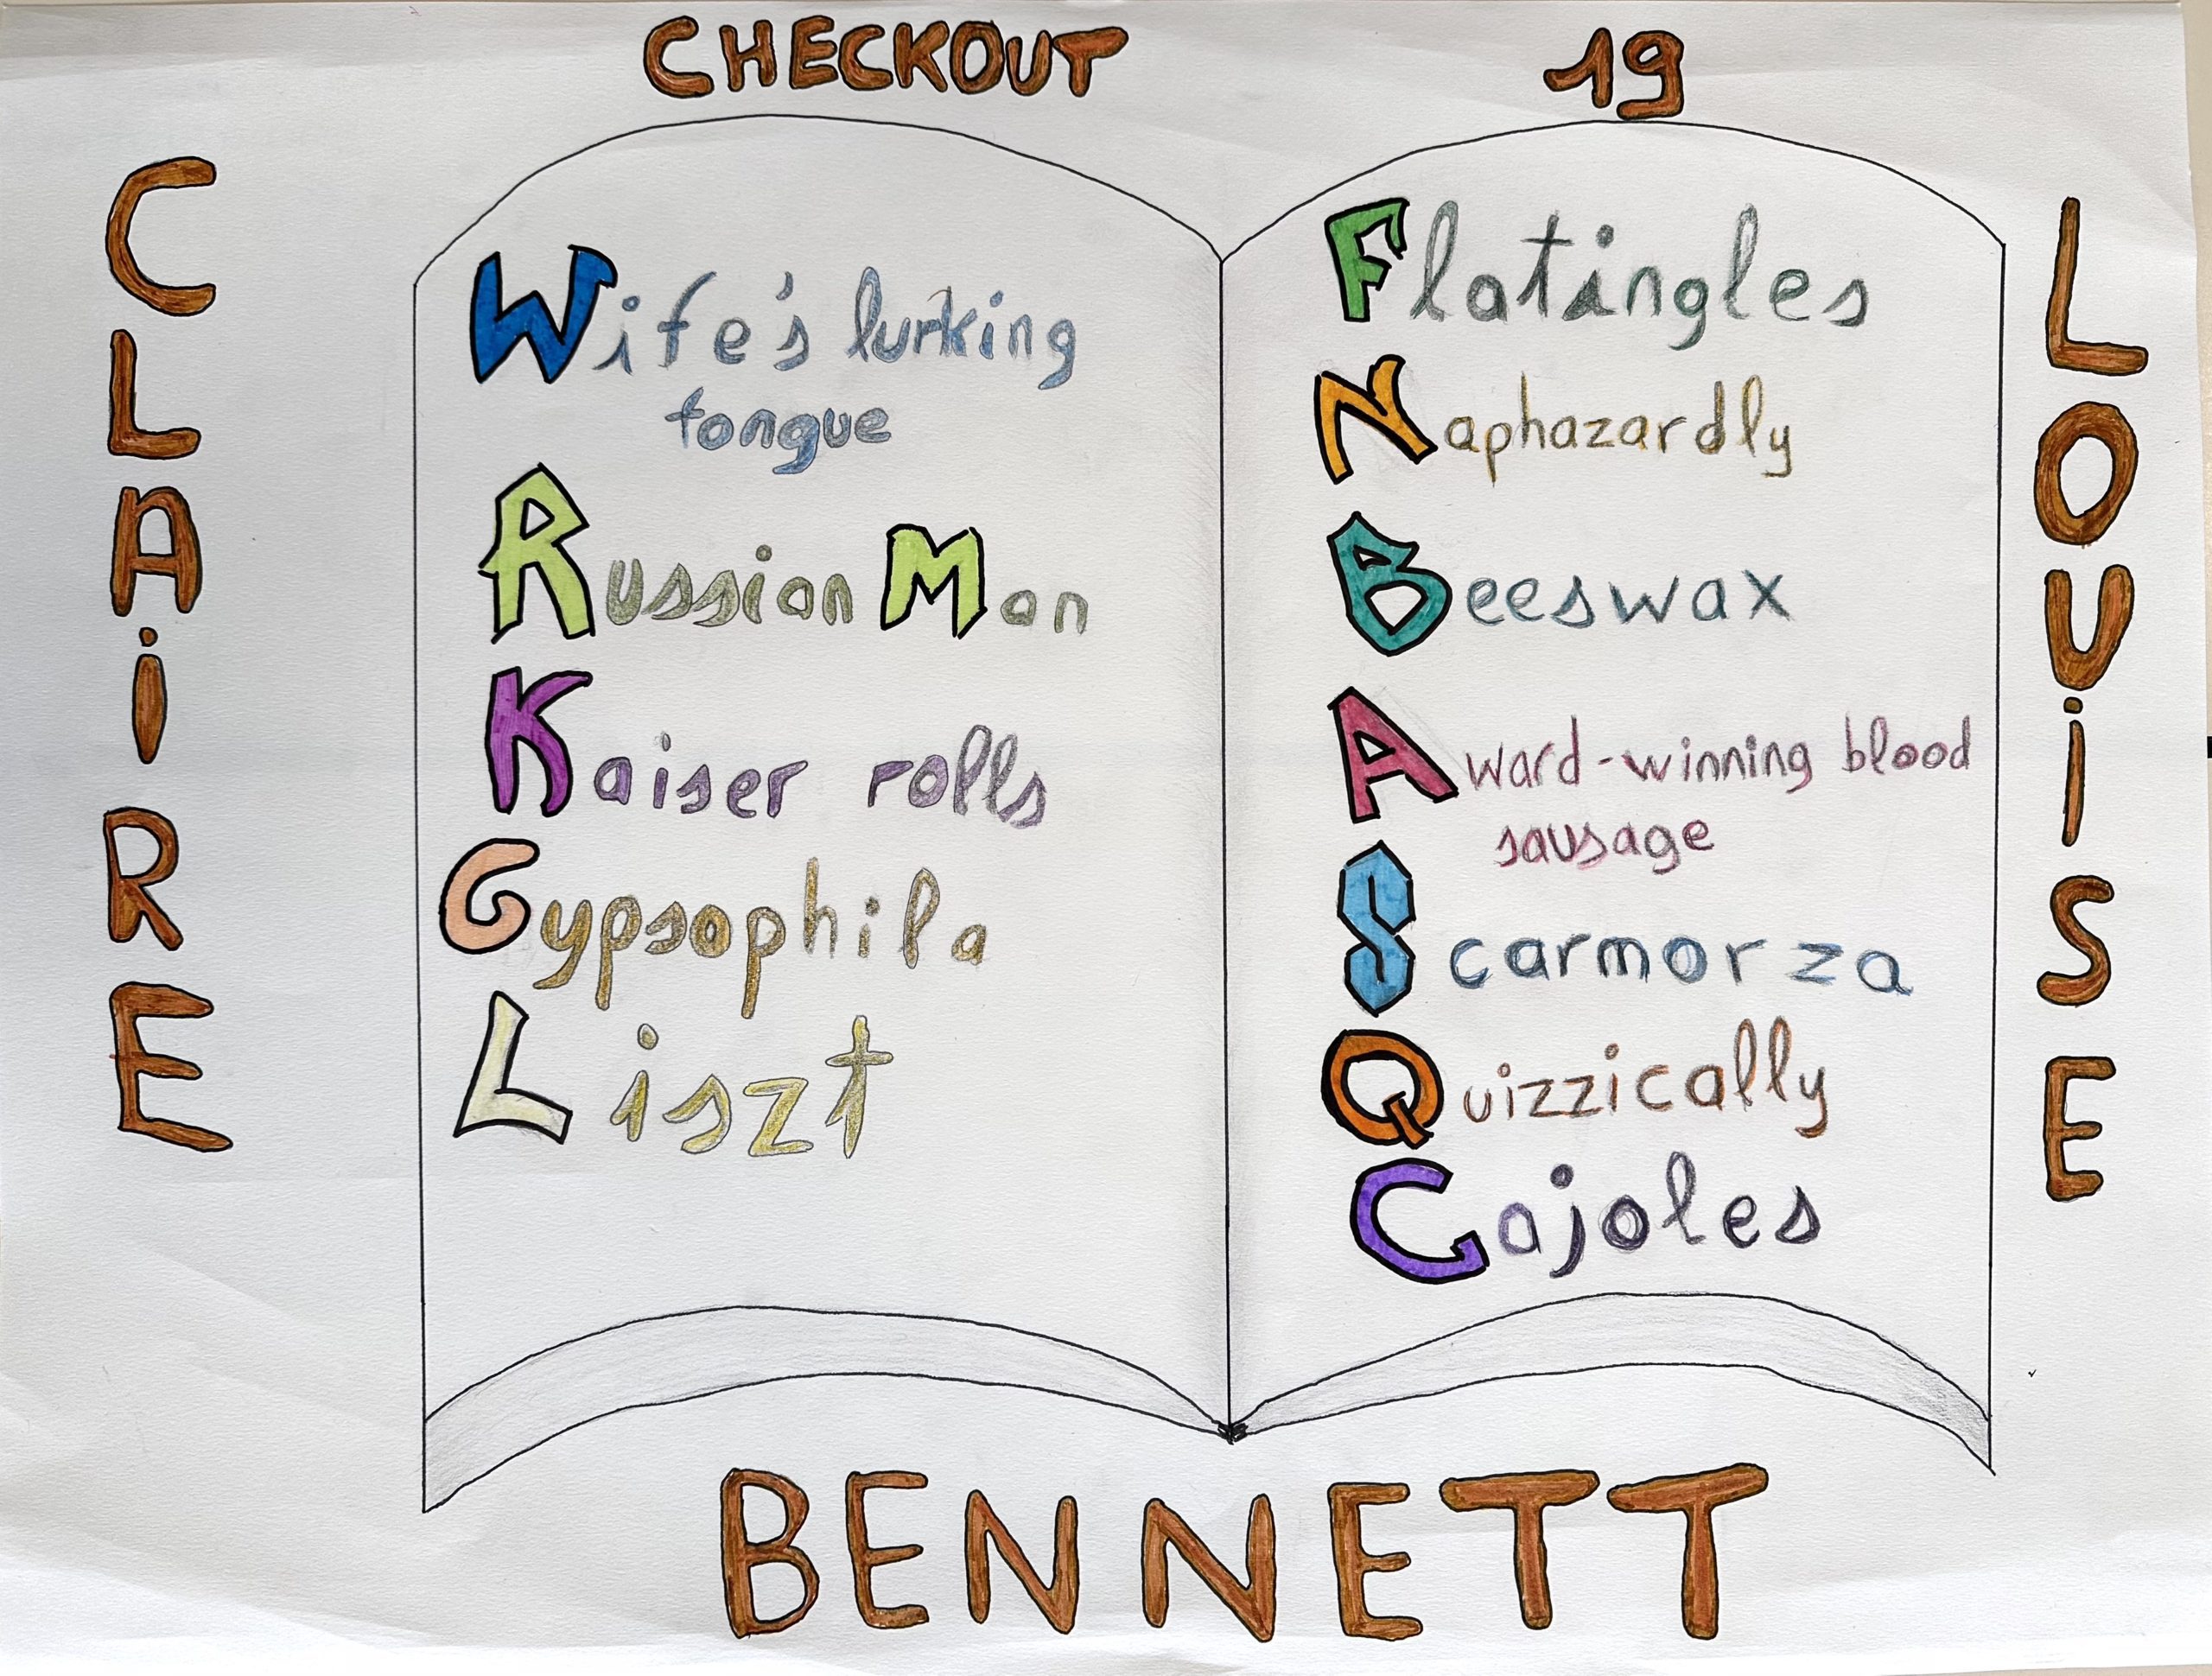 CHECKOUT 19
CLAiRE
Wife's lurking
tongue
Russian Man
Kaiser rolls
Gypsophila
Liszt
Flatingles
Naphazardly
Beeswax
Award-winning blood
sausage
Scarmorza
Quizzically
Cajoles
LOUiSE
BENNETT